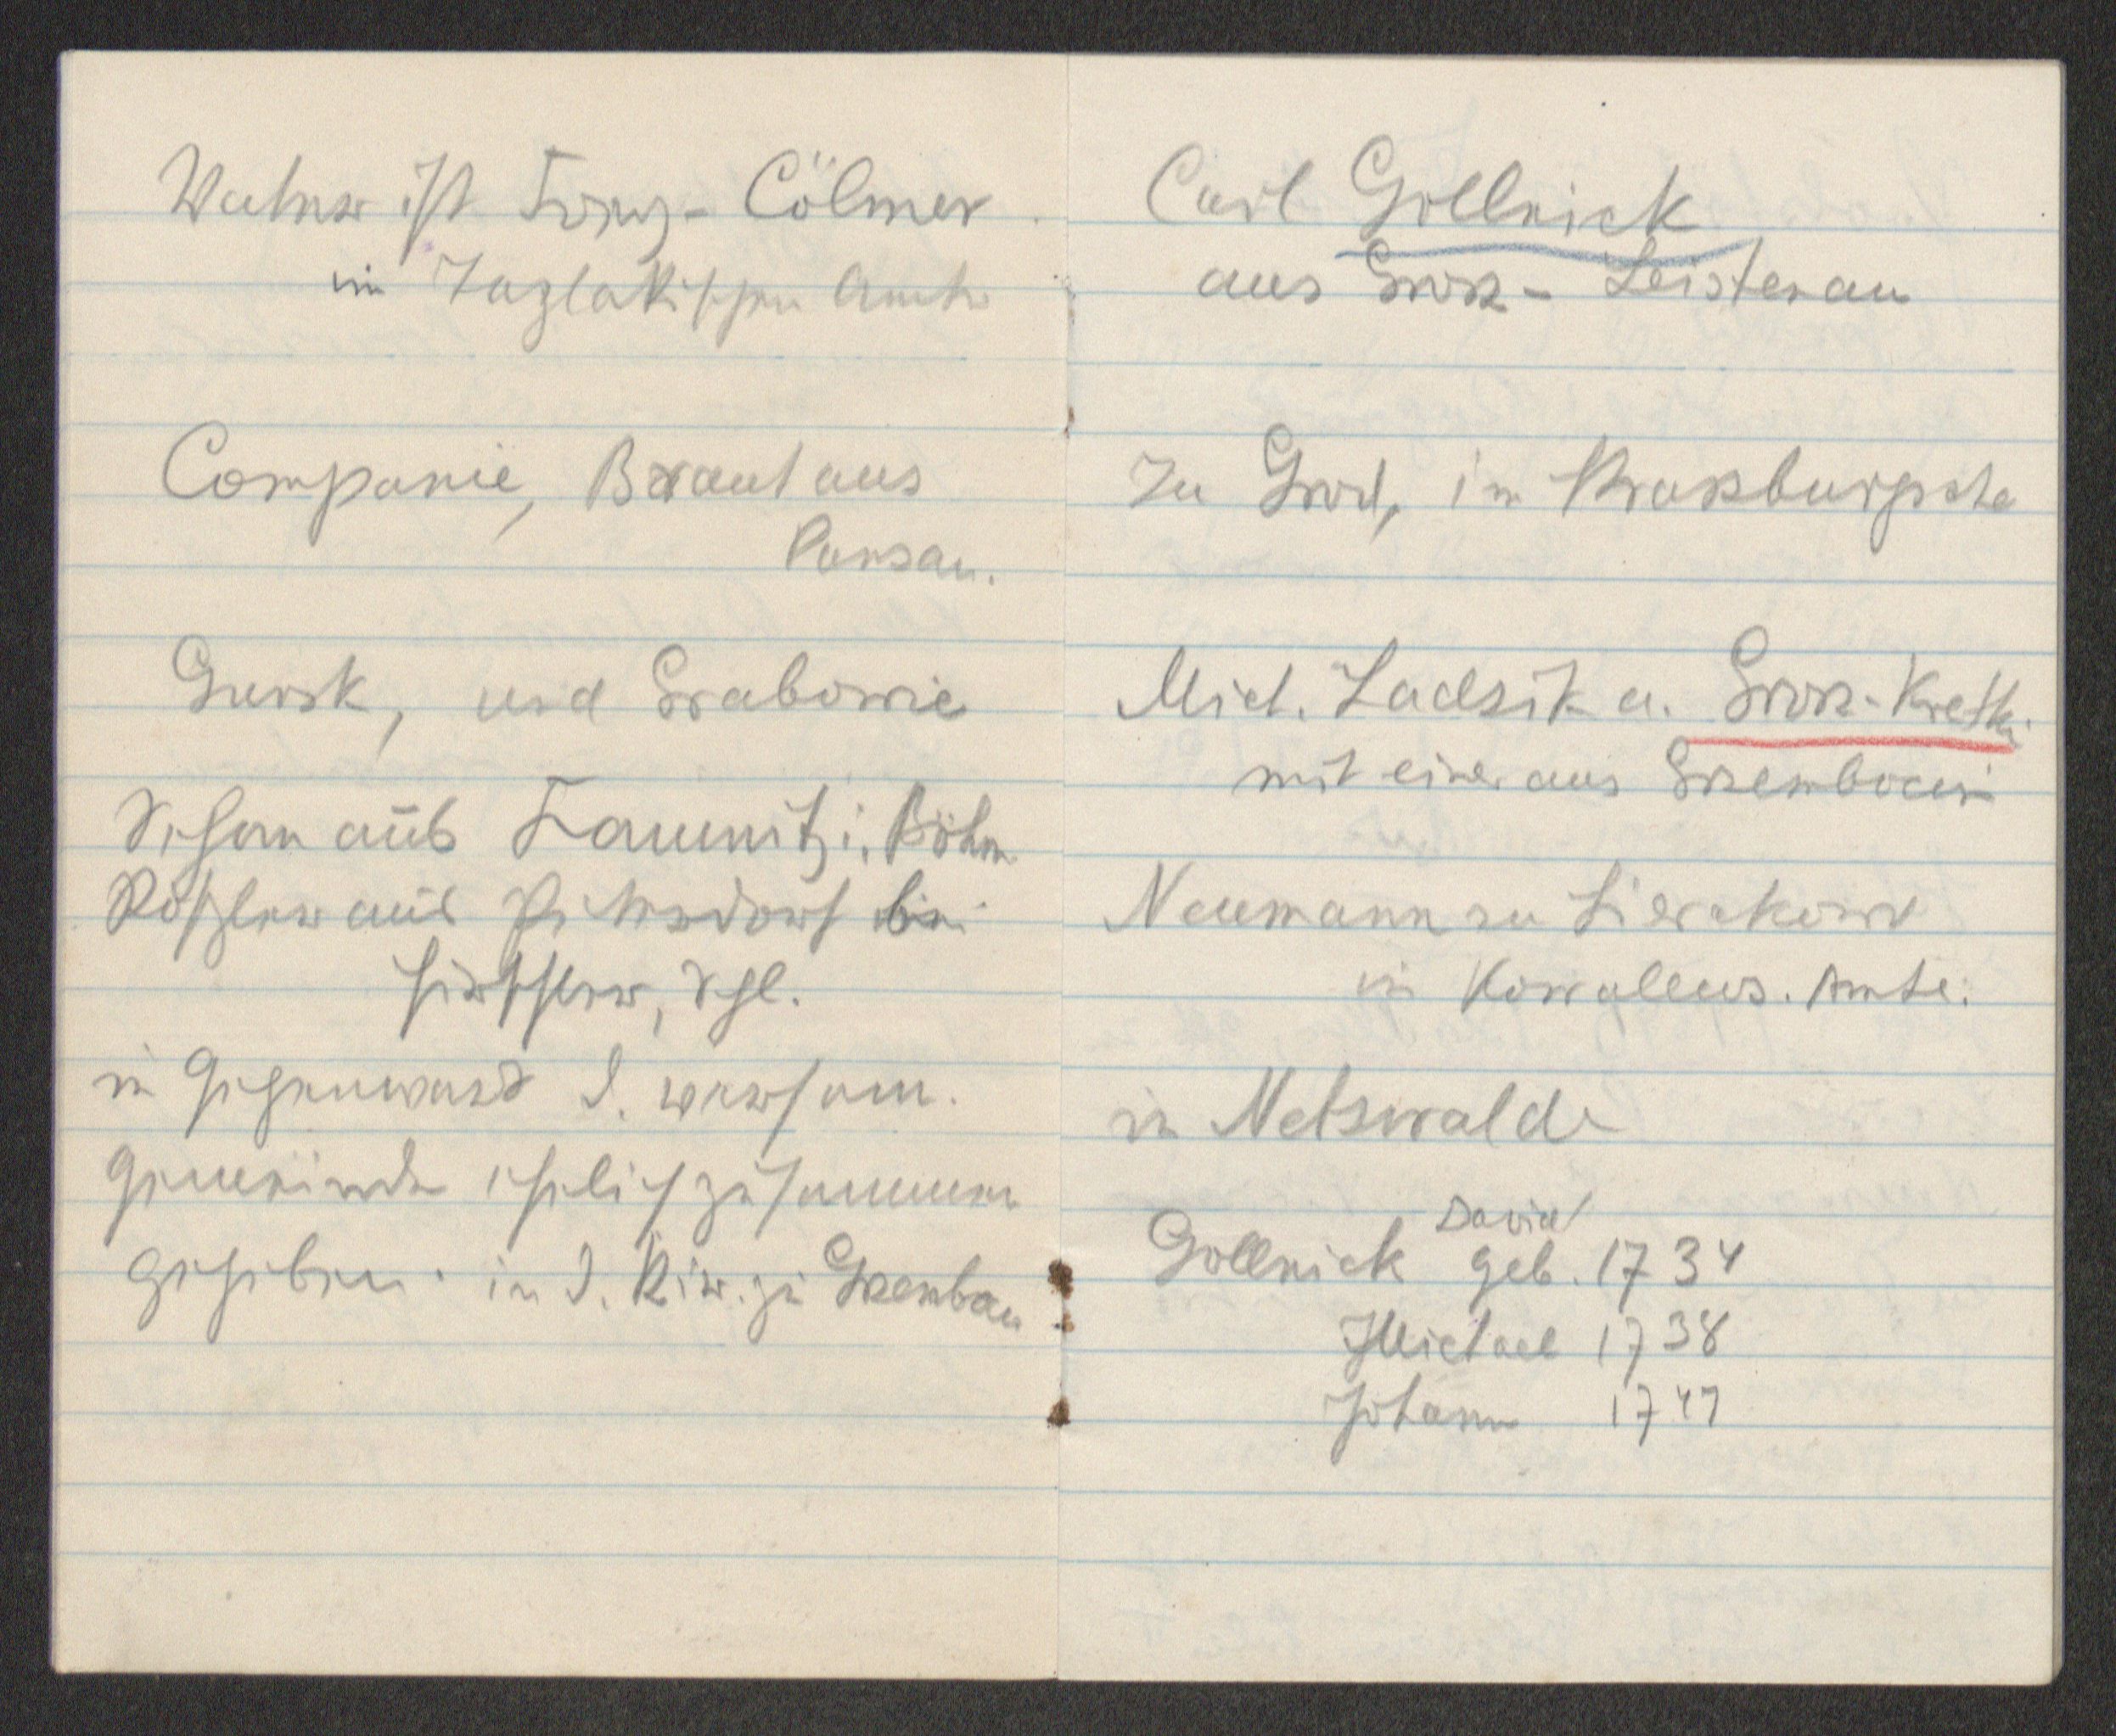 Vater ist Frey-Cölmer
im Taglakischen Amte
Companie, Braut aus
Pansau.
Gursk, und Grabowie
Schon aus Kamnitz i. Böhm
Rößler aus Petersdorf bei
Hirschber, Schl.
in Gegenward d. versam.
Gemeinde ehelich zusammen
gegeben. in d. Kir. zu Grembon
Carl Gollnick
aus Gross-Leistenau
Zu Grod, im Strasburgsche
Mich. Ladsik a. Gross-Kretki
mit einer aus Grembocin
Neumann zu Sierakow
in Kowalews. Amte.
in Netswalde
David
Gollnick geb. 1734
Michael 1738
Johann 1741